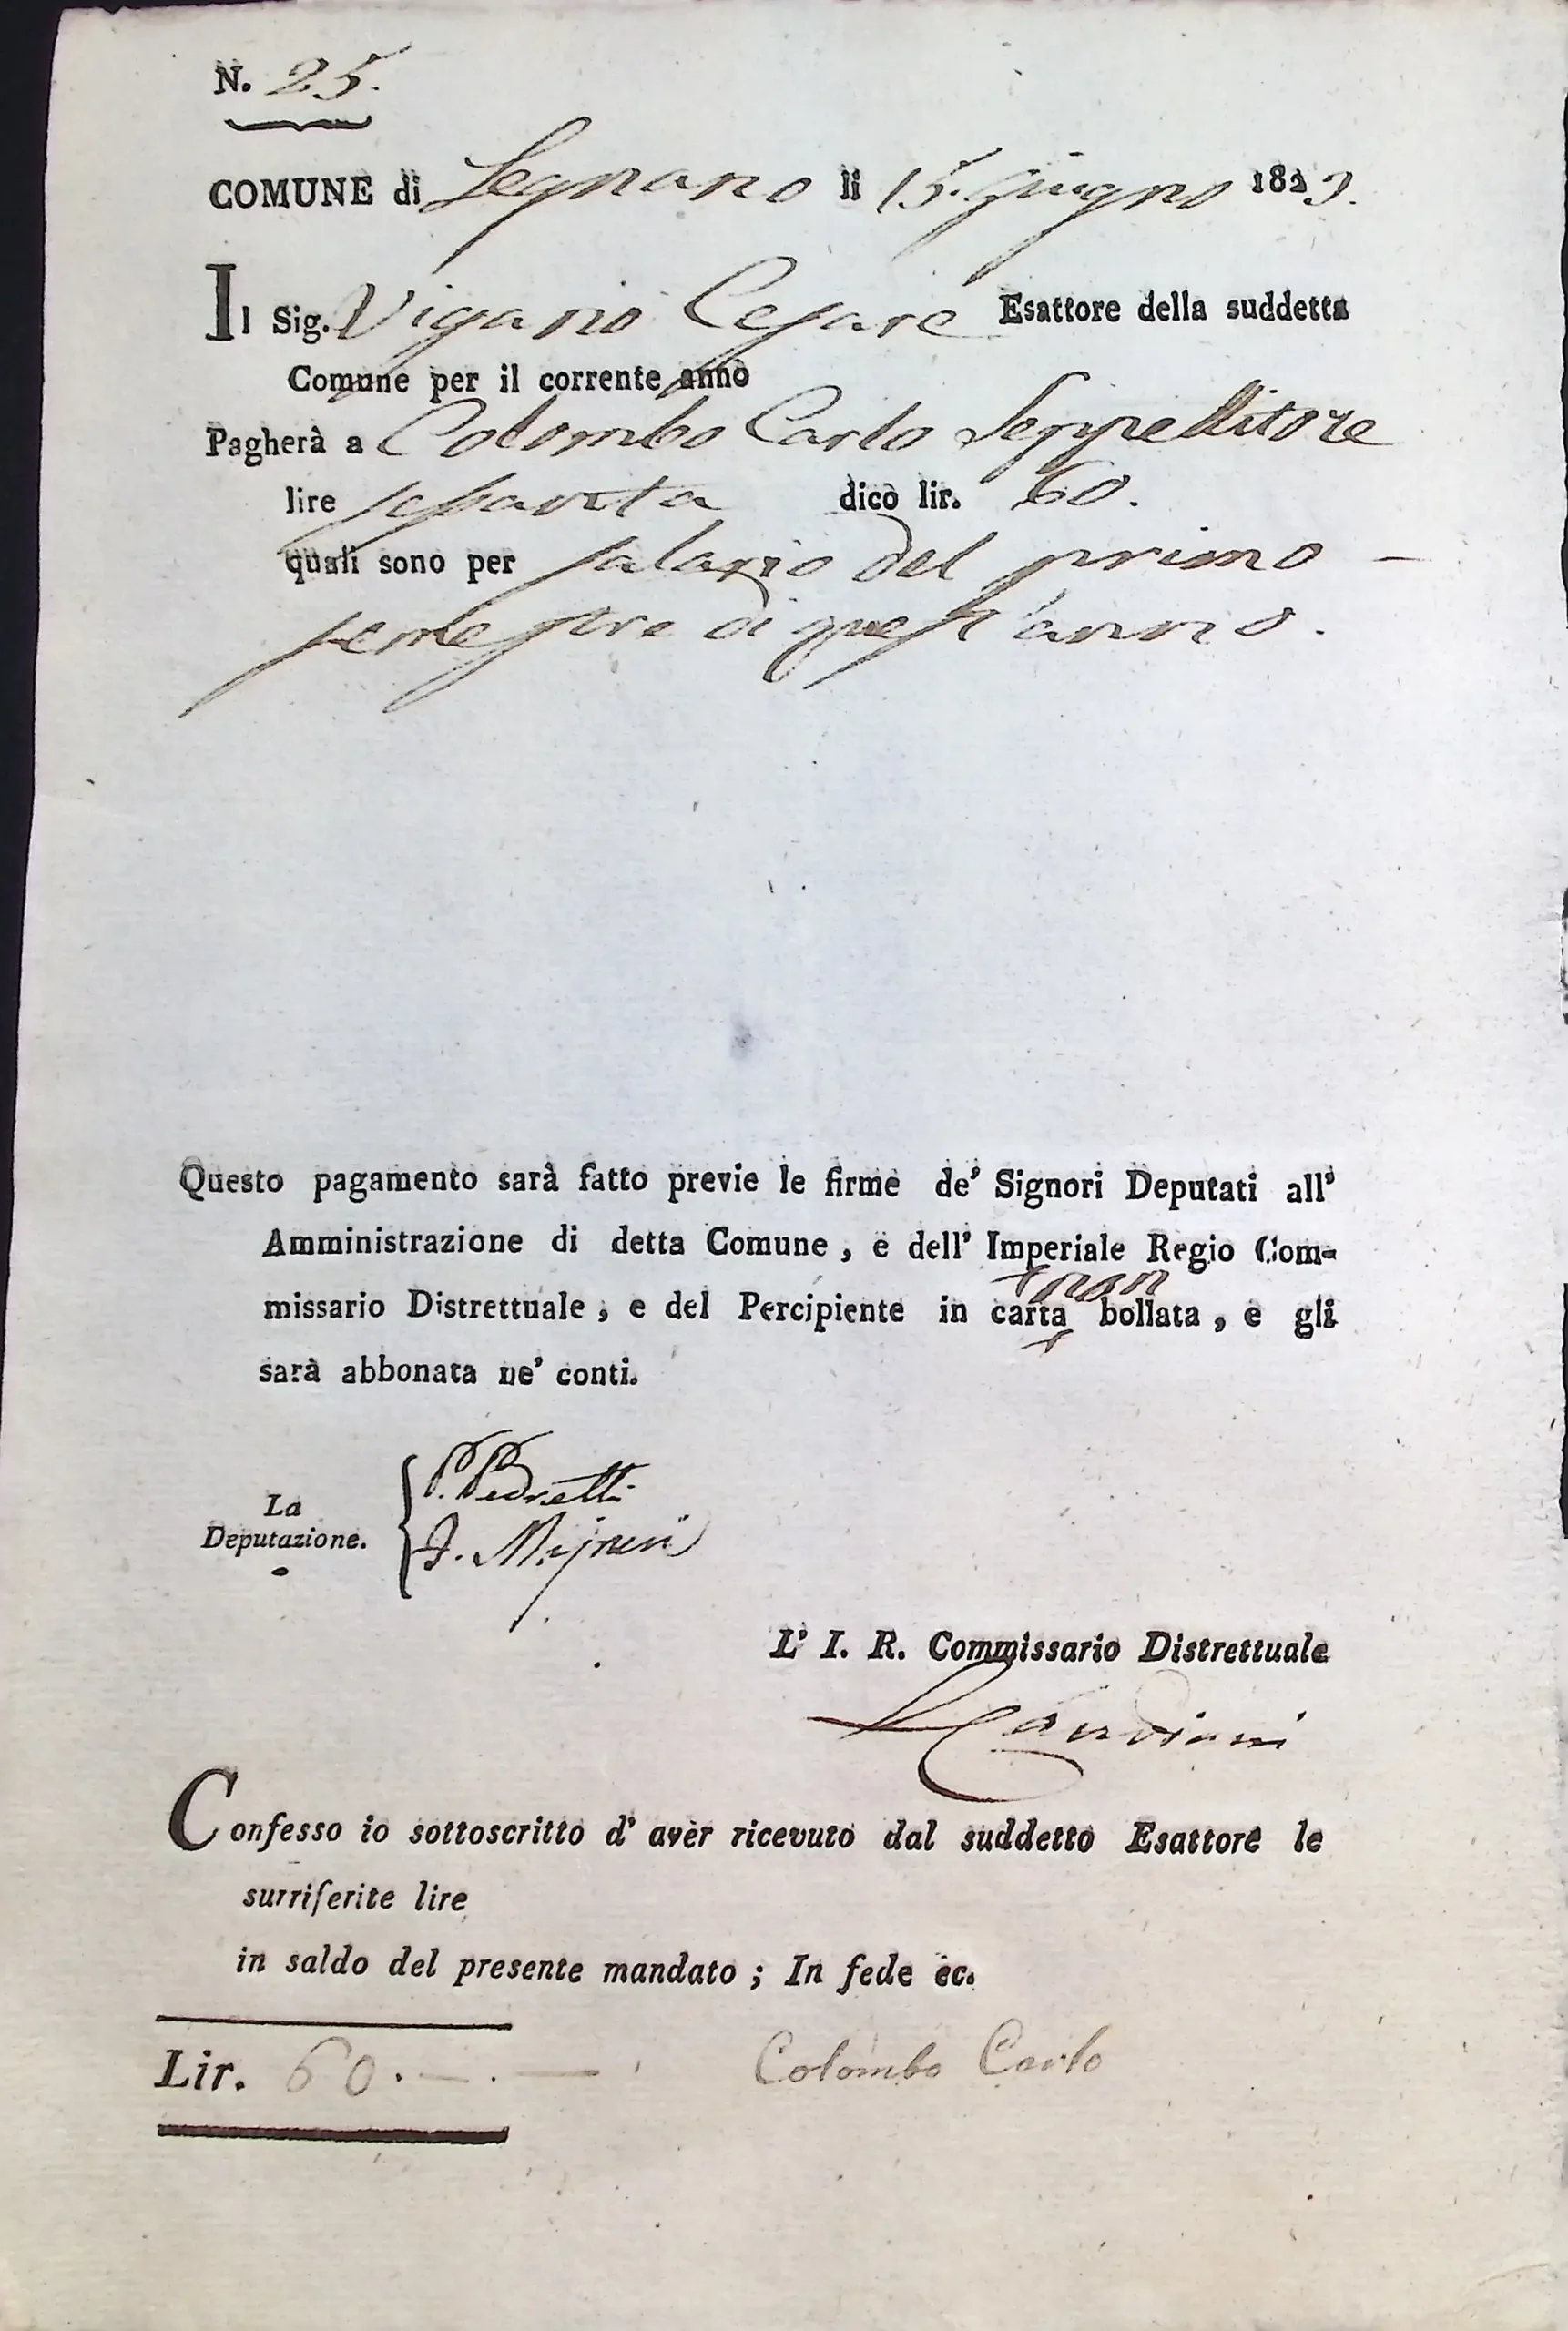 N. 25.
COMUNE di Legnano li 15. Giugno 1823.
Il Sig. Viganò Cesare Esattore della suddetta
Comune per il corrente anno
Pagherà a Colombo Carlo Seppellitore
lire sessanta dico lir. 60.
quali sono per salario del primo –
semestre di quest'anno.
Questo pagamento sarà fatto previe le firme de' Signori Deputati all'
Amministrazione di detta Comune, e dell' Imperiale Regio Com=
missario Distrettuale, e del Percipiente in carta non bollata, e gli
sarà abbonata ne' conti.
La
Deputazione.
P. Pedretti
L' I. R. Commissario Distrettuale
Confesso io sottoscritto d' aver ricevuto dal suddetto Esattore le
surriferite lire
in saldo del presente mandato; In fede ec.
Lir. 60. — . —
Colombo Carlo